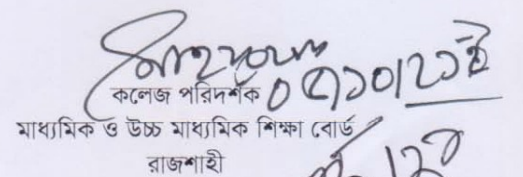 ০৫/১০/২১ইং
কলেজ পরিদর্শক
মাধ্যমিক ও উচ্চ মাধ্যমিক শিক্ষা বোর্ড
রাজশাহী